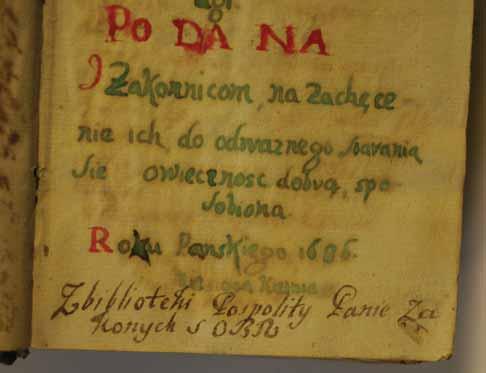 PODANA
I Zakonnicom, na Zachęce
nie ich, do odwaznego starania
sie owiecznosc dobrą, spo-
sobiona.
Roku Panskiego 1686.
Zbiblioteki Pospolity Panie Za
konnych s OBR